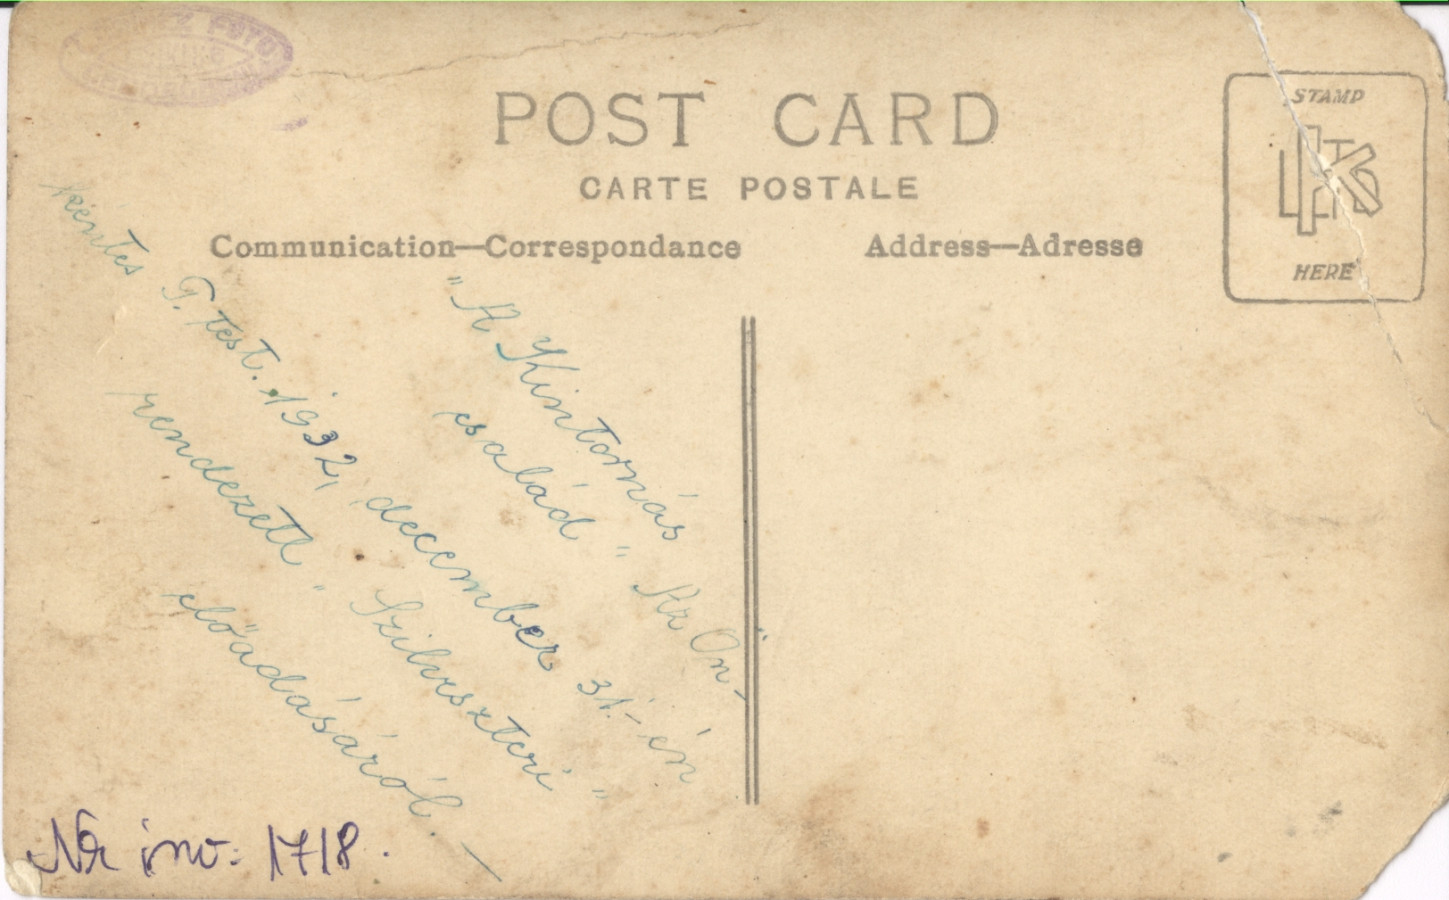 FOTO
POST CARD
CARTE POSTALE
Communication—Correspondance
Address—Adresse
STAMP
HERE
"A Kintornás
család" Az Ön-
kéntes T. Test. 1932, december 31.-én
rendezett "Szilveszteri"
előadásáról. —
Nr inv: 1718.